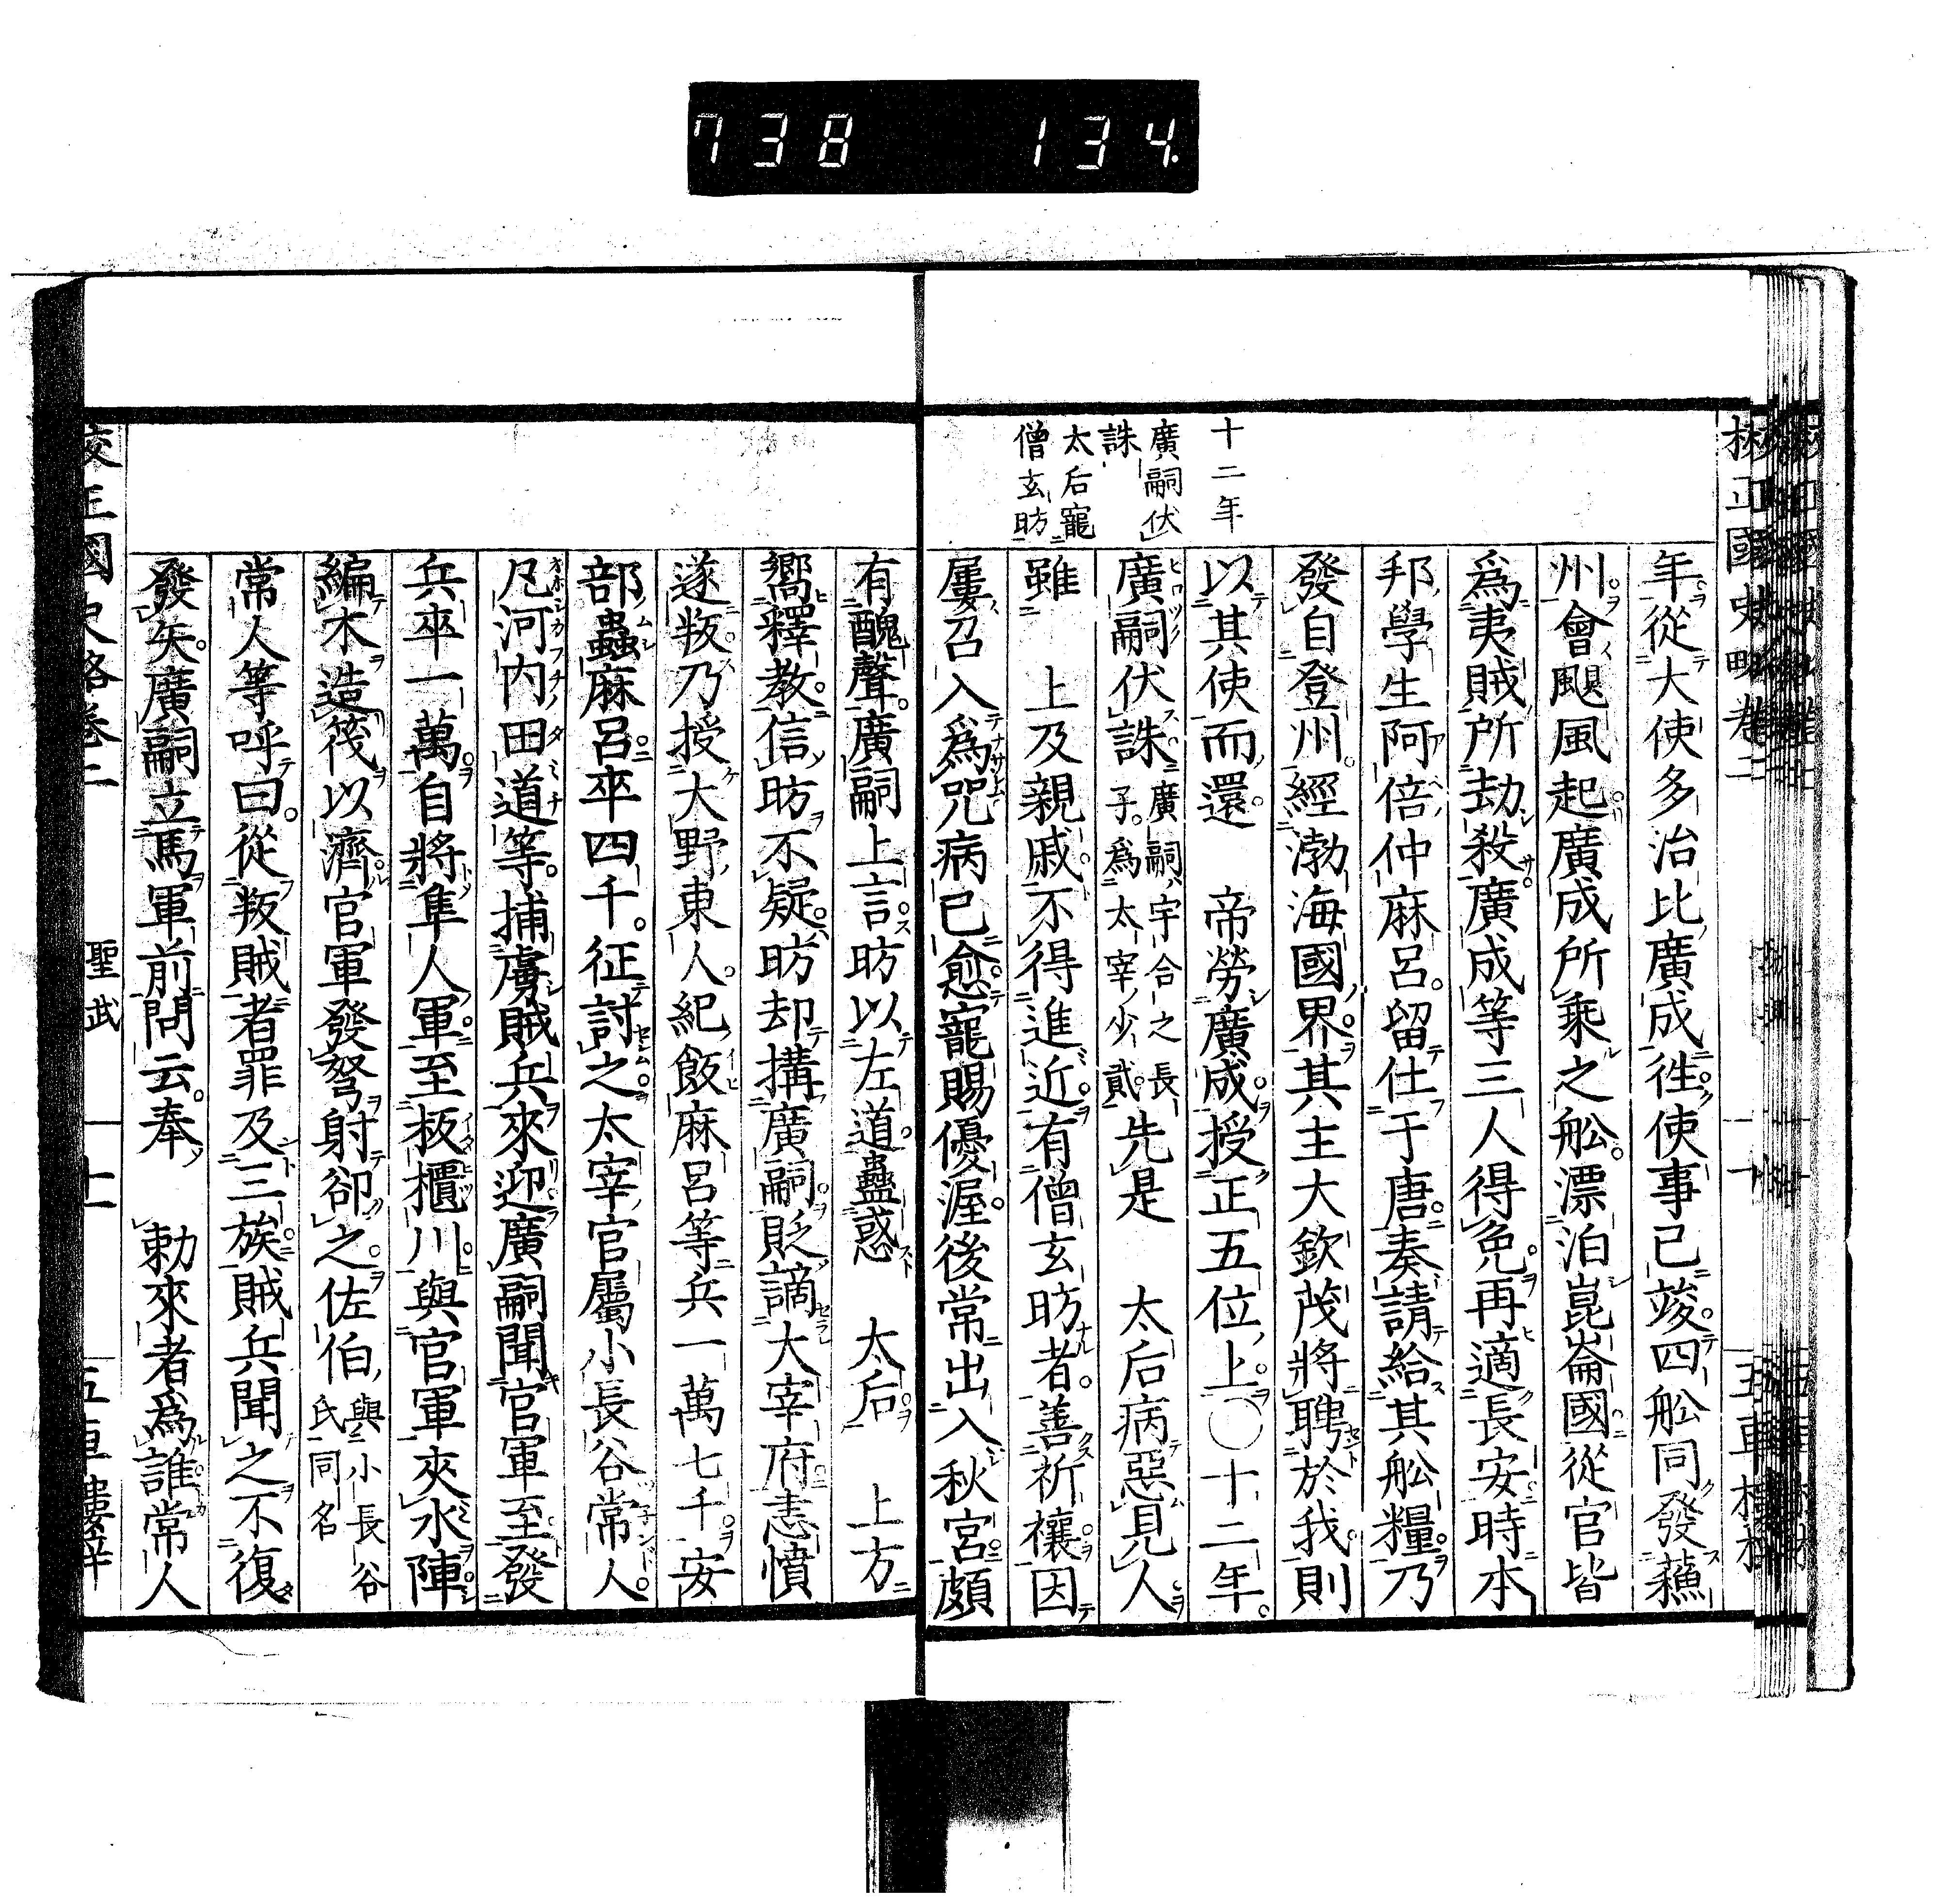 738 134.
十二年
廣嗣伏
誅
太后寵
僧玄昉
年從大使多治比廣成徃使事已竣四舩同發蘓
州會颶風起廣成所乘之舩漂泊崑崙國從官皆
爲夷賊所劫殺廣成等三人得免再適長安時本
邦學生阿倍仲麻呂留仕于唐奏請給其舩糧乃
發自登州經渤海國界其主大欽茂將聘於我則
以其使而還 帝勞廣成授正五位上〇十二年
廣嗣伏誅廣嗣宇合之長子爲太宰少貳先是 太后病惡見人
雖 上及親戚不得進近有僧玄昉者善祈禳因
屢召入爲咒病已愈寵賜優渥後常出入秋宮頗
有醜聲廣嗣上言昉以左道蠱惑 太后 上方
嚮釋教信昉不疑昉却搆廣嗣貶謫大宰府恚憤
遂叛乃授大野東人紀飯麻呂等兵一萬七千安
部蟲麻呂卒四千征討之太宰官屬小長谷常人
凡河内田道等捕虜賊兵來迎廣嗣聞官軍至發
兵卒一萬自將隼人軍至板櫃川與官軍夾水陣
編木造筏以濟官軍發弩射卻之佐伯與小長谷氏同名
常人等呼曰從叛賊者罪及三族賊兵聞之不復
發矢廣嗣立馬軍前問云奉 勅來者爲誰常人
聖武